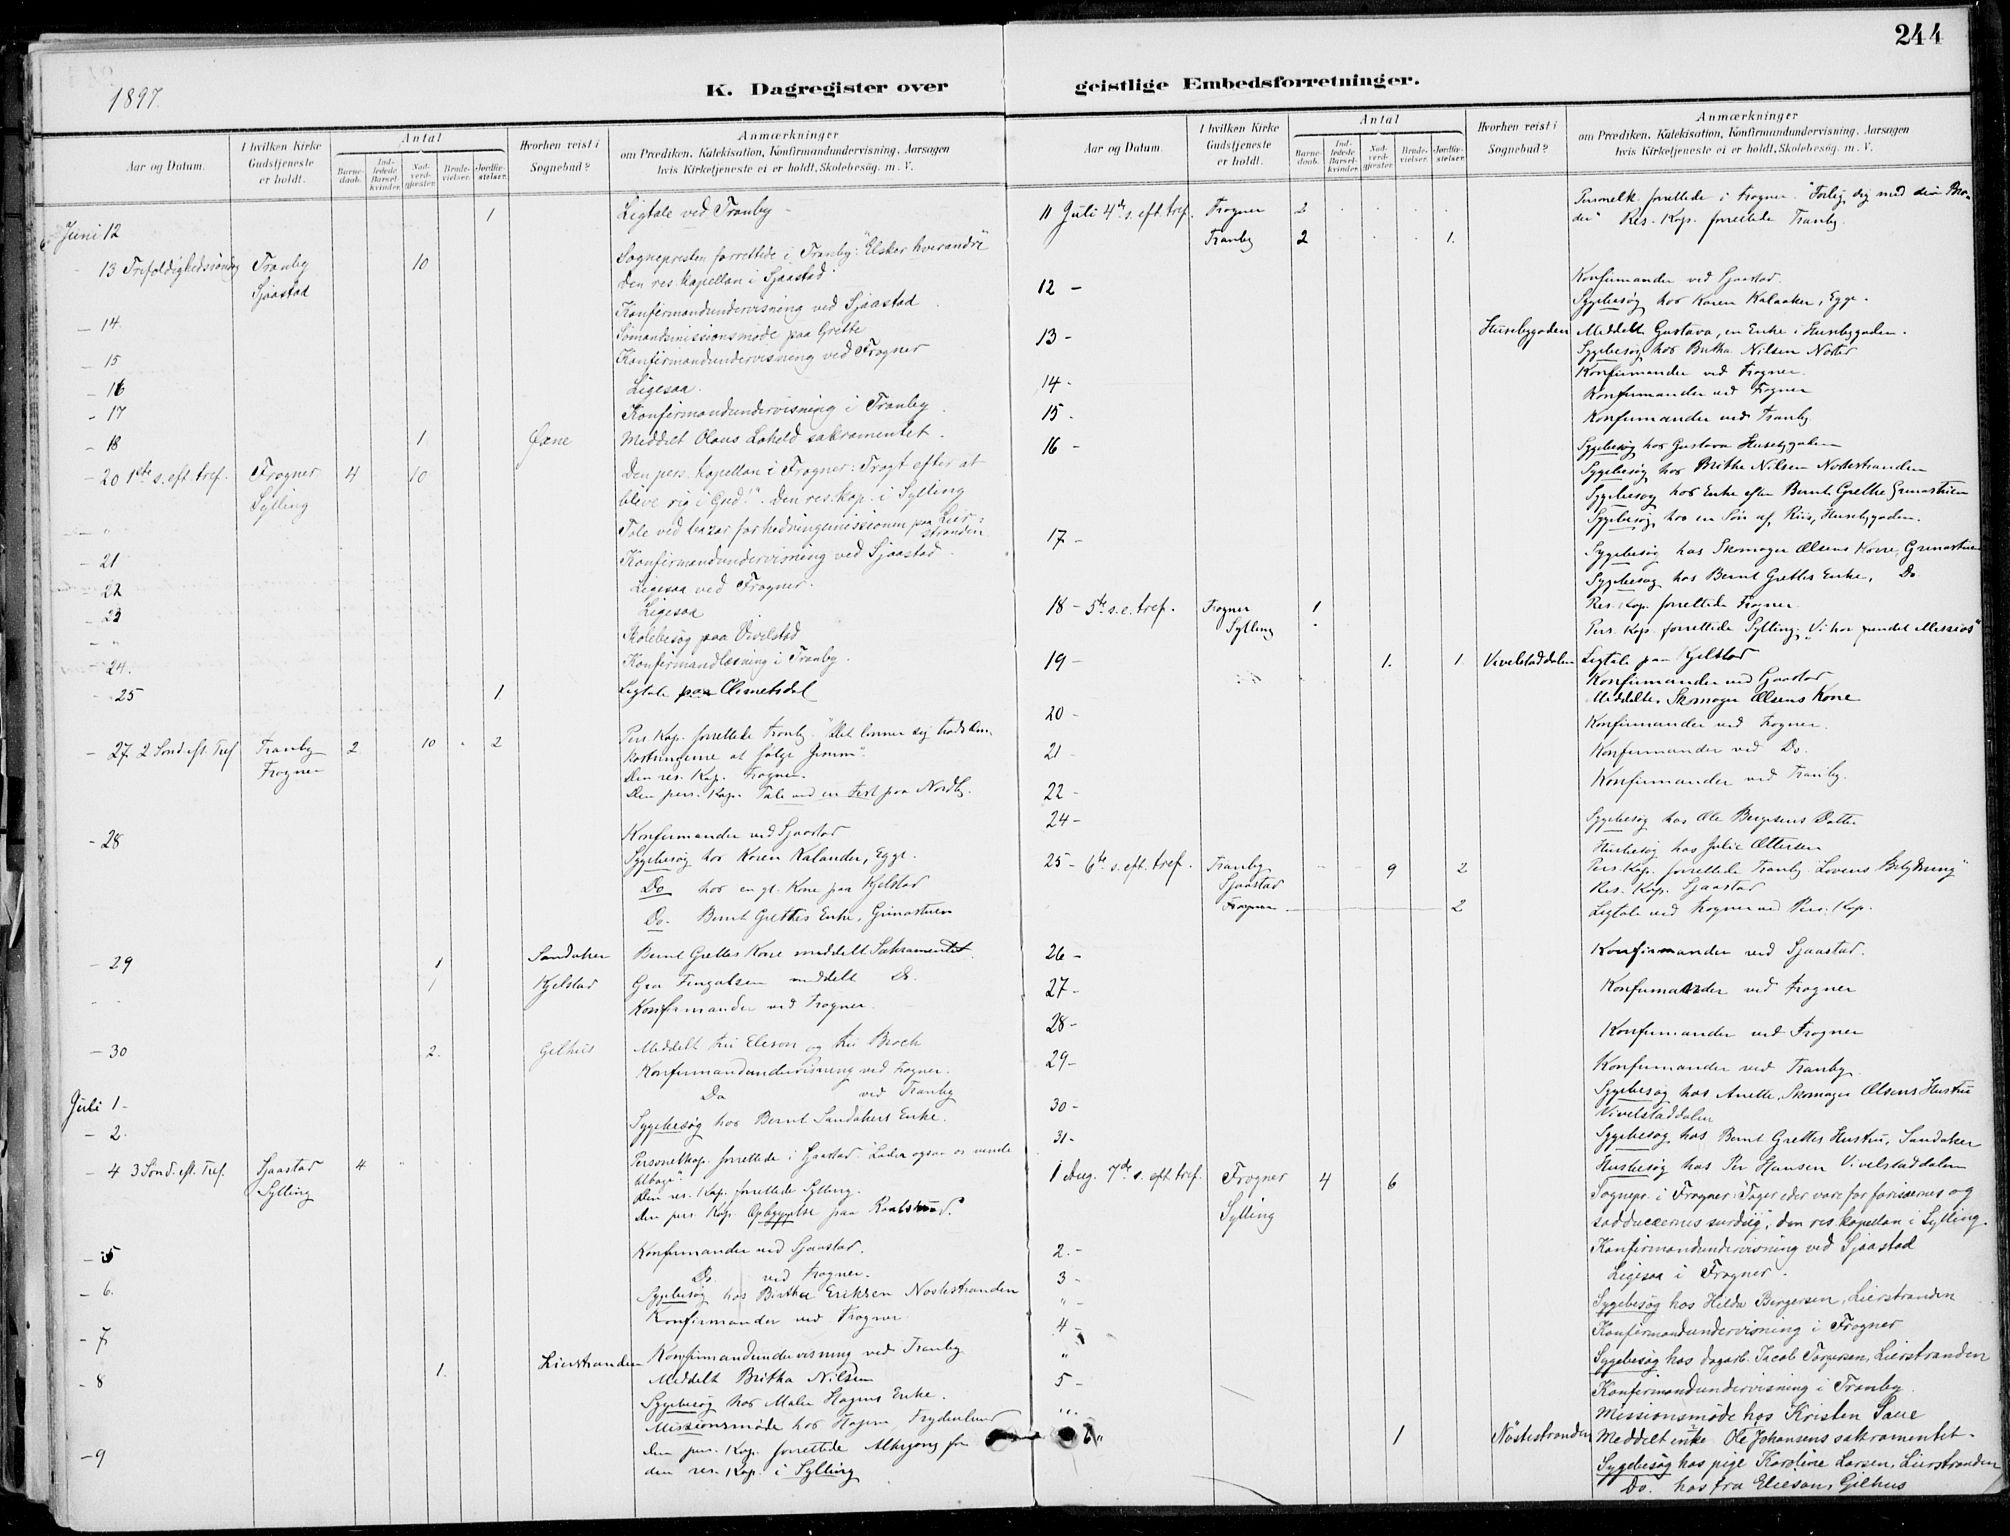 244
1897.
K. Dagregister over geistlige Embedsforretninger.
Aar og Datum.
I hvilken Kirke Gudstjeneste er holdt.
Antal
Barnedaab.
Indledede Barselkvinder.
Nadverdgjester.
Brudevielser.
Jordfæstelser.
Hvorhen reist i Sognebud?
Anmærkninger
om Prædiken, Katekisation, Konfirmandundervisning, Aarsagen
hvis Kirketjeneste ei er holdt, Skolebesög, m. V.
Juni 12 1 Ligtale ved Tranby -
13 Trefoldighedssöndag Tranby 10 Sognepresten forrettede i Tranby: "Elsker hverandre"
Sjaastad Den res. kapellan i Sjaastad
- 14 Konfirmandundervisning ved Sjaastad.
Sømandsmissionsmøde paa Grette
- 15 Konfirmandundervisning ved Frogner
- 16 Ligesaa.
- 17 Konfirmandundervisning i Tranby.
- 18 1 Meddelt Olaus sakramentet.
- 20 1ste s. eft. tref. Frogner 4 10 Den pers. kapellan i Frogner: Tragt efter at
Sylling blive rig i Gud!". Den res. kap. i Sylling
" Tale ved bazar for hedningemissionen paa Lierstranden
- 21 Konfirmandundervisning ved Sjaastad.
- 22 Ligesaa ved Frogner.
- 23 Ligesaa
" Skolebesøg paa Vivelstad
- 24. Konfirmandlæsning i Tranby.
- 25 1 Ligtale paa
- 27 2 Sönd. eft. Tref. Tranby 2 10 2 Pers. Kap. forrettede Tranby. "Det lönner sig trods
Frogner at følge
Den res. Kap. Frogner.
Den pers. Kap. Tale ved en Fest paa Nordby.
- 28 Konfirmander ved Sjaastad
Sygebesøg hos Karen Kalander, Egge.
Do hos en gl. Kone paa Kjelstad
Do. Bernt Grettes Enke,
- 29 1 Sandaker Bernt Grettes Kone meddelt Sakramentet.
1 Kjelstad meddelt Do.
Konfirmander ved Frogner.
- 30 2. Gilhus Meddelt Fru Elieson og Fru Broch
Konfirmandundervisning ved Frogner.
Juli 1 - Do ved Tranby
- 2. Sygebesøg hos Bernt Sandakers Enke.
- 4 3 Sönd. eft. Tref. Sjaastad 4 Personelkap. forrettede i Sjaastad. "Lader ogsaa os vende
Sylling tilbage"
Den res. Kap. forrettede Sylling.
Den pers. Kap. Opbyggelse paa
- 5 Konfirmander ved Sjaastad.
- 6. Do. ved Frogner.
Sygebesøg hos Birthe Eriksen Nöstestranden
- 7 Konfirmander ved Frogner
- 8 1. Lierstranden Konfirmandundervisning ved Tranby
Meddelt Britha Nilsen
Sygebesøg hos Maler Hagens Enke.
Missionsmøde hos Frydenlund
- 9 Den pers. Kap. forrettede Altergang for
den res. Kap. i Sylling
Aar og Datum.
I hvilken Kirke Gudstjeneste er holdt.
Antal
Barnedaab.
Indledede Barselkvinder.
Nadverdgjester.
Brudevielser.
Jordfæstelser.
Hvorhen reist i Sognebud?
Anmærkninger
om Prædiken, Katekisation, Konfirmandundervisning, Aarsagen
hvis Kirketjeneste ei er holdt, Skolebesög, m. V.
11 Juli 4de s. eft. tref. Frogner 2 Personelk. forrettede i Frogner. "Forlig dig med din Broder"
Tranby 2 1. Res. Kap. forrettede Tranby
12 - Konfirmander ved Sjaastad.
Sygebesøg hos Karen Egge.
13 - Husebygaden Meddelt Gustava, en Enke i Husebygaden.
Sygebesøg hos Britha Nilsen Nöste
Konfirmander ved Frogner.
14 - Konfirmander ved Frogner
15 - Konfirmander ved Tranby
16 - Sygebesøg hos Gustava Husebygaden
Sygebesøg hos Brithe Nilsen Nöstestranden
Sygebesøg hos Enke efter Bernt Grethe
Sygebesøg hos en Sön af Riis, Husebygaden.
17 - Sygebesøg hos Skomager Olsens Kone,
Sygebesøg hos Bernt Grettes Enke, Do
18 - 5te s. e. tref. Frogner 1 Res. Kap. forrettede Frogner.
Sylling Pers. Kap. forrettede Sylling. "Vi har fundet Messias"
19 - 1. 1 Vivelstaddalen Ligtale paa Kjelstad
Konfirmander ved Sjaastad
Meddelte Skomager Olsens Kone
20 - Konfirmander ved Frogner.
21 - Konfirmander ved Do.
22 - Konfirmander ved Tranby.
24 - Sygebesøg hos Ole Bergersens Datter
Husbesøg hos Julie Ottersen
25 - 6te s. eft. tref. Tranby 9 2 Pers. Kap. forrettede Tranby. "Lovens Betydning"
Sjaastad Res. Kap. Sjaastad
Frogner 2 Ligtale ved Frogner ved Pers. Kap.
26 - Konfirmander ved Sjaastad.
27 - Konfirmander ved Frogner
28 - Konfirmander ved Frogner
29 - Konfirmander ved Tranby
30 - Sygebesøg hos Anette, Skomager Olsens Hustru
Vivelstaddalen
31 - Sygebesøg hos Bernt Grettes Hustru, Sandaker
Husbesøg hos Per Hansen Vivelstaddalen
1 Aug. 7de s. eft. tref. Frogner 4 6 Sognepr. i Frogner: "Tager eder vare for farisæernes og
Sylling sadducæernes surdeig"; den res. kapellan i Sylling.
2. - Konfirmandundervisning ved Sjaastad
3 - Ligesaa i Frogner.
" - Sygebesøg hos Hilda Bergersen, Lierstranden
4 - Konfirmandundervisning i Frogner
" Sygebesøg hos dagarb. Jacob Torgersen, Lierstranden
5 - Konfirmandundervisning i Tranby.
" Missionsmøde hos Kristen Saue
6 " 1 Nöstestranden Meddelt enke Ole Johansens sakramentet -
Sygebesøg hos pige Karoline Larsen, Lierstranden
Do. hos fru Elieson, Gilhus